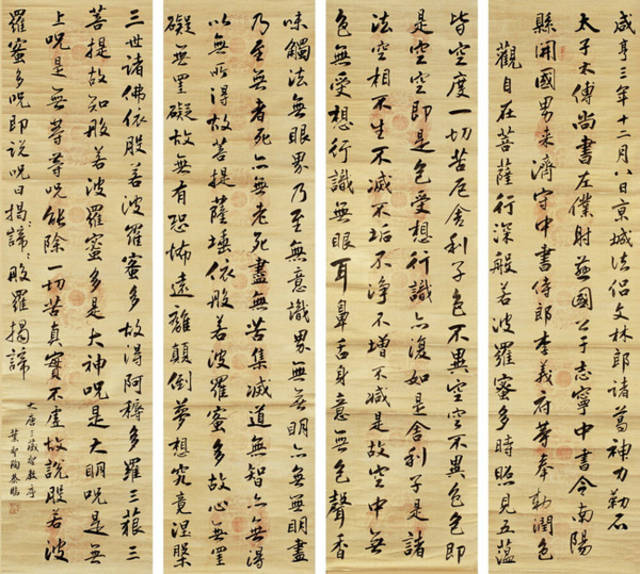 咸亨三年十二月八日京城法侶文林郎諸葛神力勒石
太子太傅尚書左僕射燕國公于志寧中書令南陽
縣開國男来濟守中書侍郎李義府等奉勅潤色
觀自在菩薩行深般若波羅蜜多時照見五蕴
皆空度一切苦厄舍利子色不異空空不異色色即
是空空即是色受想行識亦復如是舍利子是諸
法空相不生不滅不垢不淨不增不減是故空中無
色無受想行識無眼耳鼻舌身意無色聲香
味觸法無眼界乃至無意識界無無明亦無無明盡
乃至無老死亦無老死盡無苦集滅道無智亦無得
以無所得故菩提薩埵依般若波羅蜜多故心無罣
礙無罣礙故無有恐怖遠離顛倒夢想究竟涅槃
三世諸佛依般若波羅蜜多故得阿耨多羅三藐三
菩提故知般若波羅蜜多是大神呪是大明呪是無
上呪是無等等呪能除一切苦真實不虛故說般若波
羅蜜多呪即說呪曰揭諦〻〻般羅揭諦
大唐三藏聖教序
葉聖陶恭臨